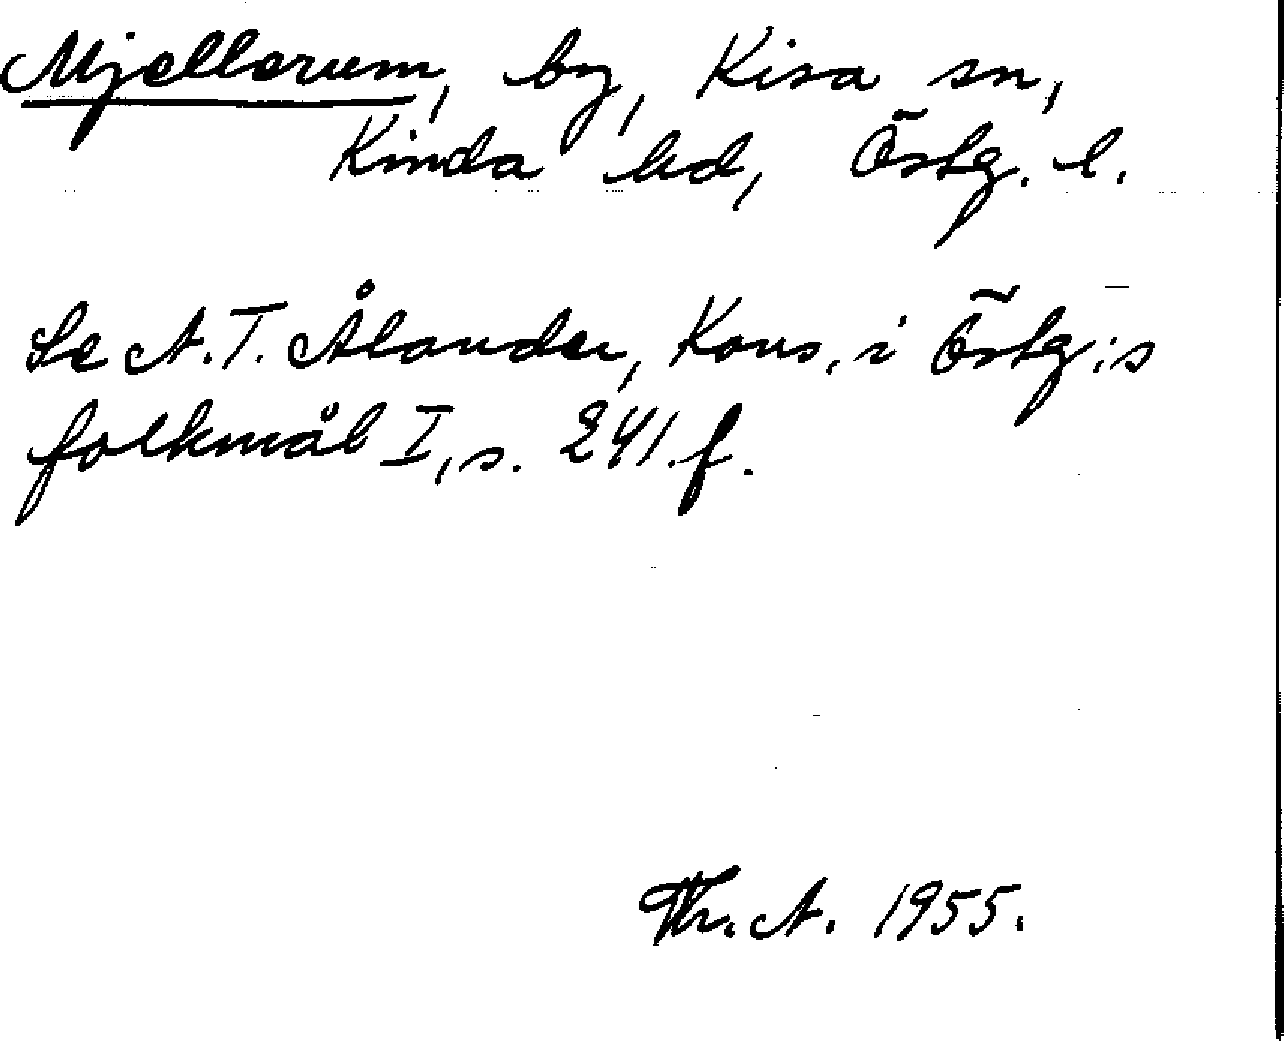 Mjellerum, by, Kisa sn,
Kinda hd, Östg. l.
Se A. T. Ålander, Kons. i Östg:s
folkmål I, s. 241 f.
Th. A. 1955.